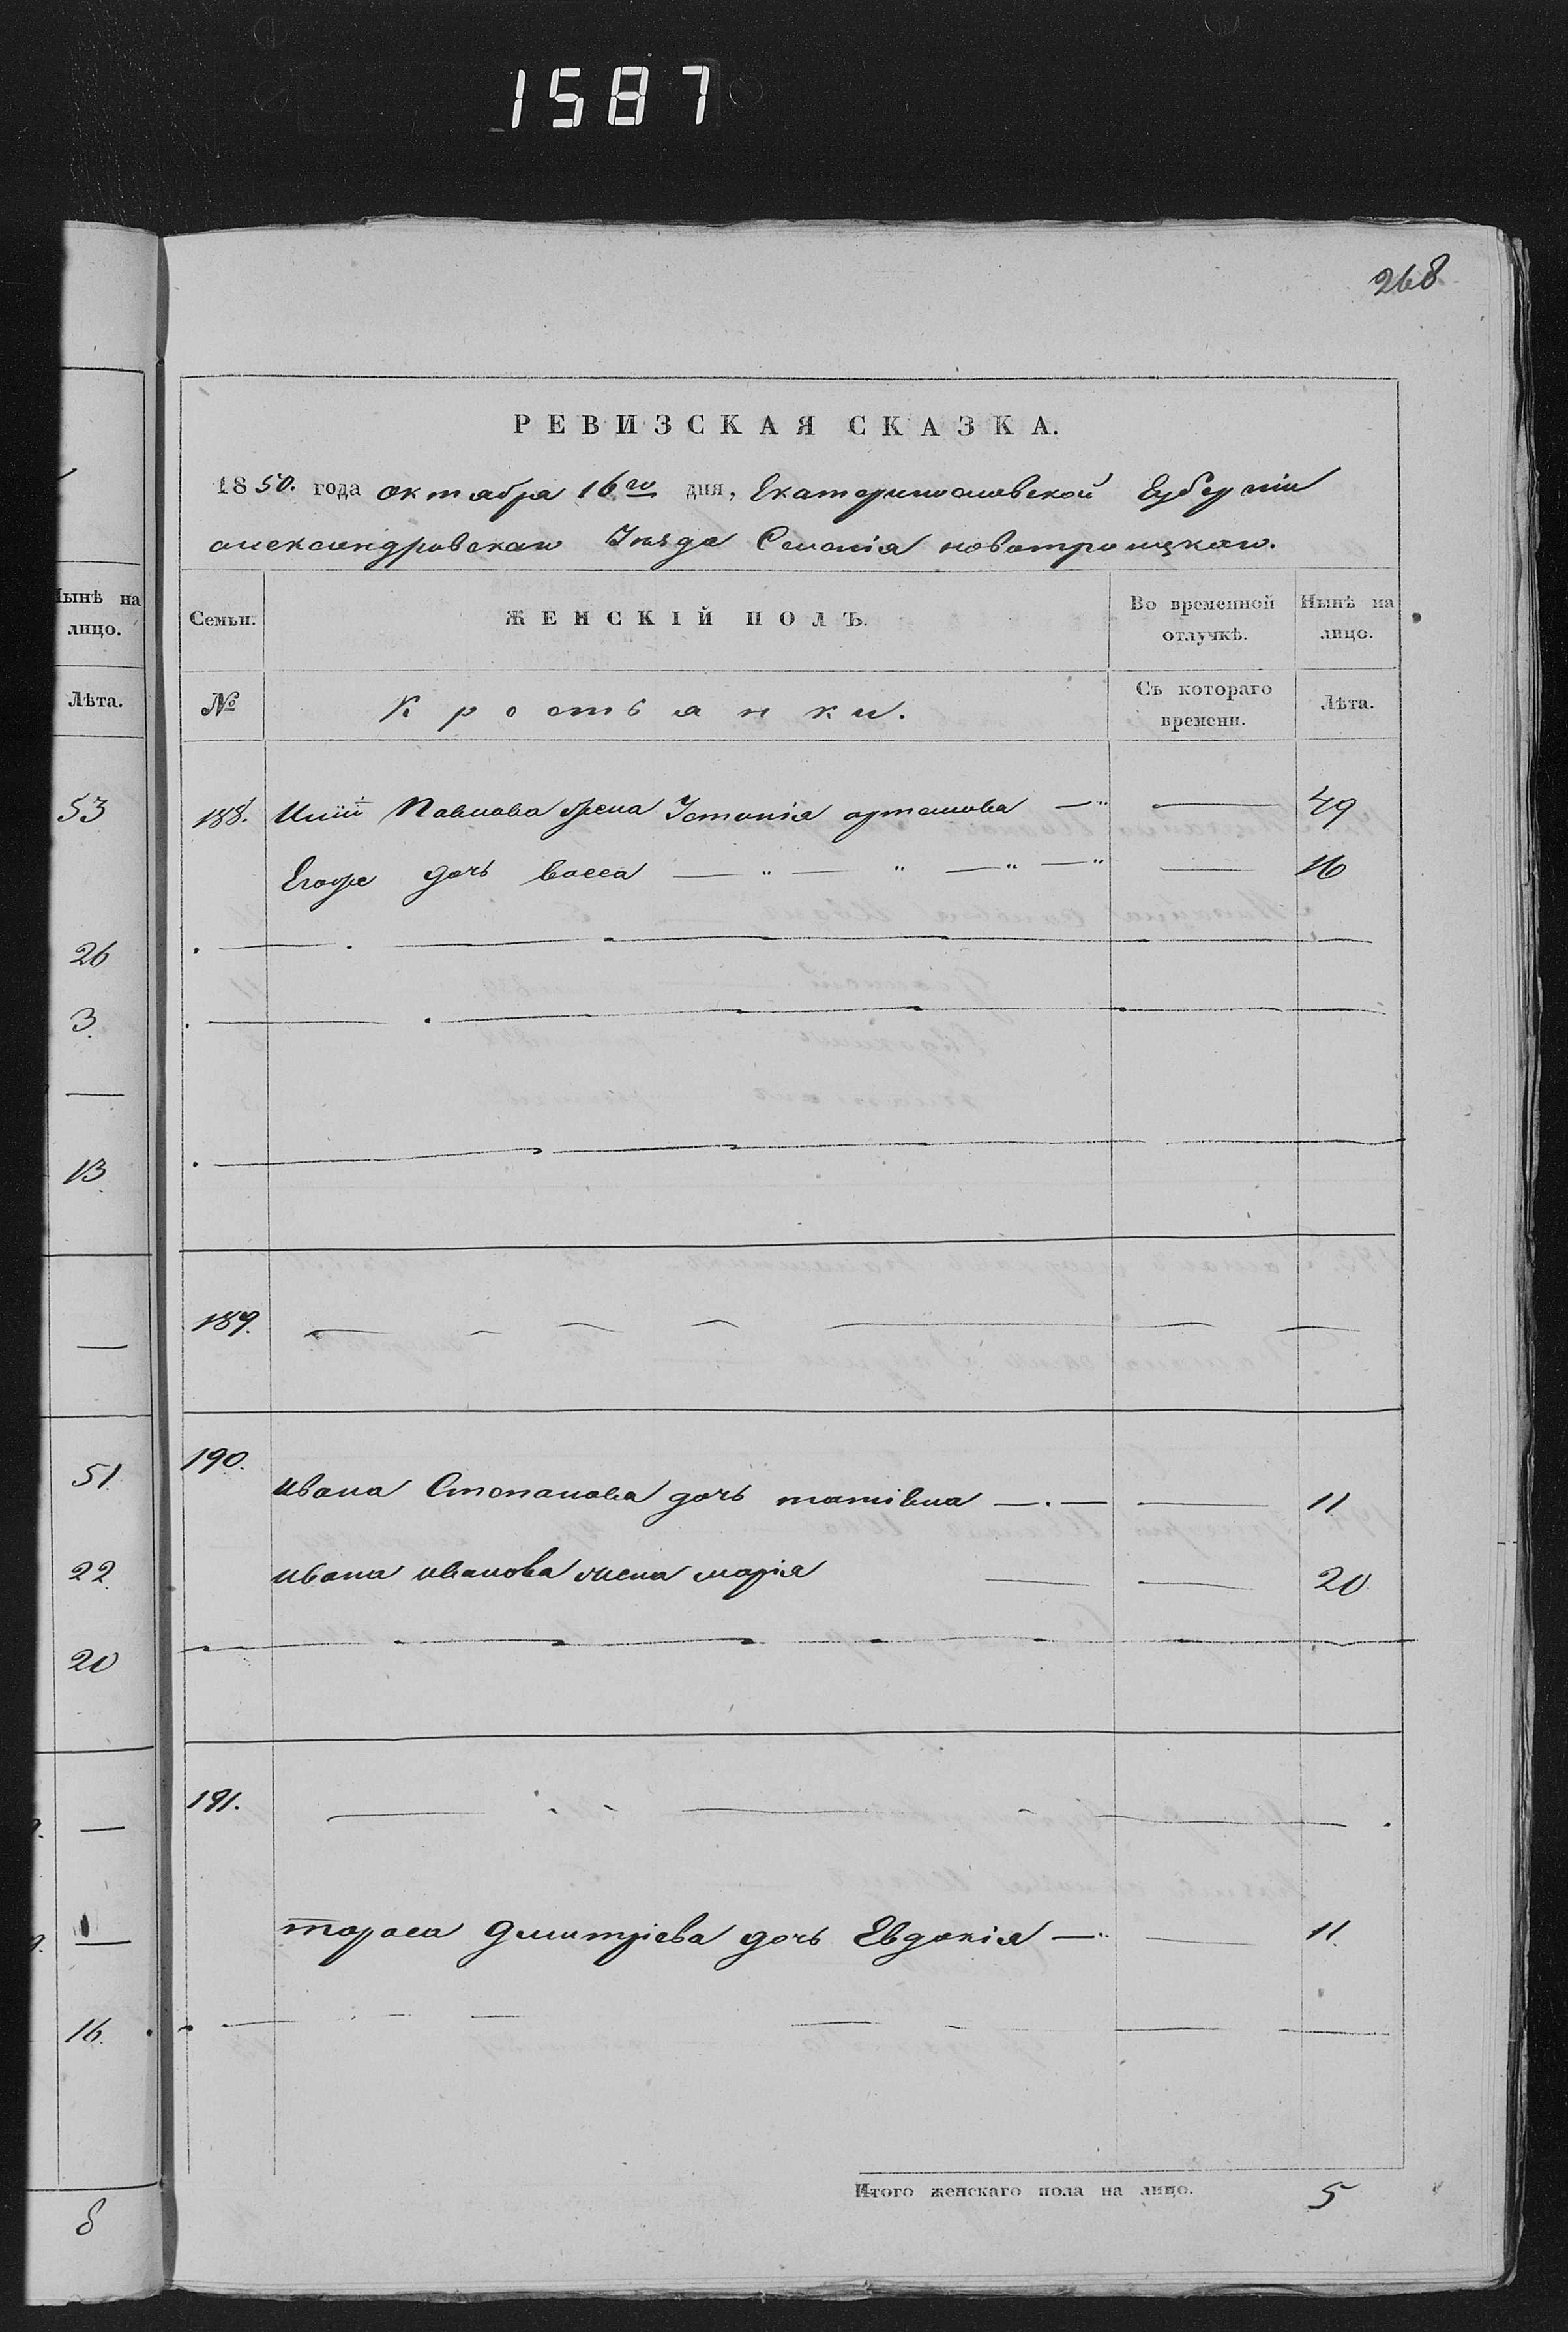 1587
268
РЕВИЗСКАЯ СКАЗКА.
1850. года октября 16го дня, Екатеринославской Губерніи
александровскаго Уѣзда Селенія новотроицкаго.
Нынѣ на лицо.
Лѣта.
53
26
3.
—
13.
—
51.
22.
20
—
—
16.
8
Семьи. ЖЕНСКІЙ ПОЛЪ. Во временной отлучкѣ. Нынѣ на лицо.
№ Крестьянки. Съ котораго времени. Лѣта.
188. Павлова жена артемова — — 49
Егоже дочь васса — „ — „ — „ — „ — 16
189. — — — — — — —
190.
Ивана Степанова дочь — — 11
Ивана иванова жена марія — — 20
191. — — —
тараса Дмитріева дочь Евдокія — — 11.
Итого женскаго пола на лицо. 5